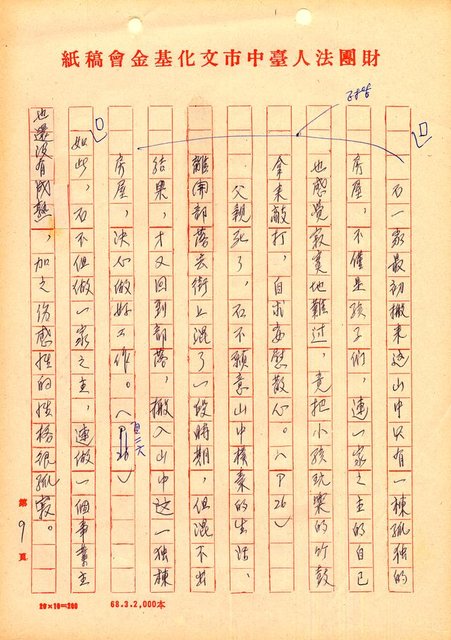 財團法人臺中市文化基金會稿紙
石一家最初搬來這山中只有一棟孤独的
房屋，不僅是孩子們，連一家之主的自己
也感覺寂寞地難过，竟把小孩玩樂的竹鼓
拿來敲打，自求安慰散心。（P26）
父親死了，石不願意山中樸素的生活，
離開部落去街上混了一段時期，但混不出
結果，才又回到部落，搬入山中这一独棟
房屋，決心做好工作。（P26）
如此，石不但做一家之主，連做一個事業主
也還沒有成熟，加之伤感性的性格很孤寂。
第9頁
20×10=200
68.3.2,000本